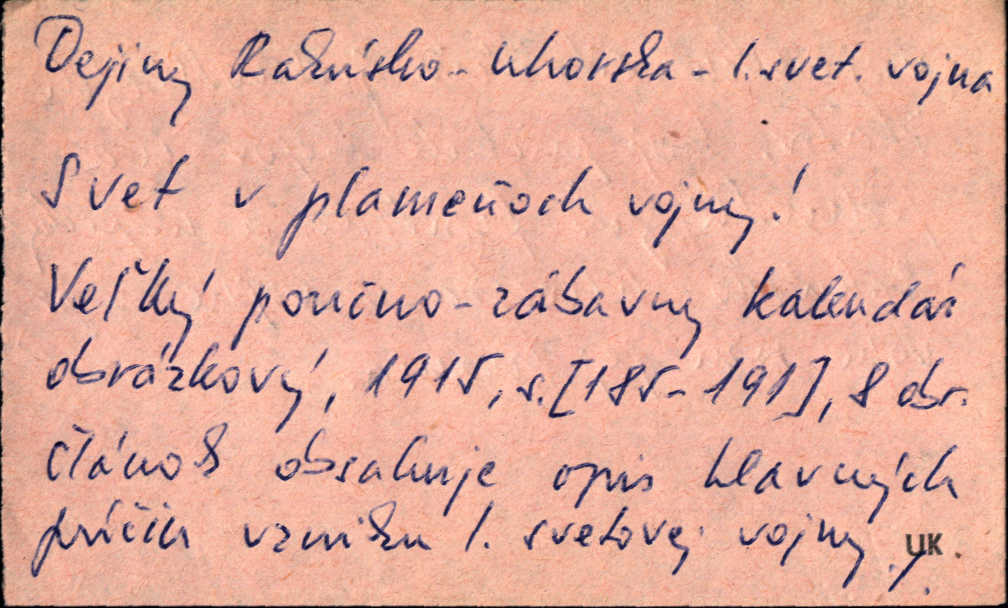 Dejiny Rakúsko-Uhorska - 1. svet. vojna
Svet v plameňoch vojny!
Veľký poučno-zábavny kalendár
obrázkový, 1915, s. [185-191], 8 obr.
Článok obsahuje opis hlavných
príčin vzniku 1. svetovej vojny.
UK